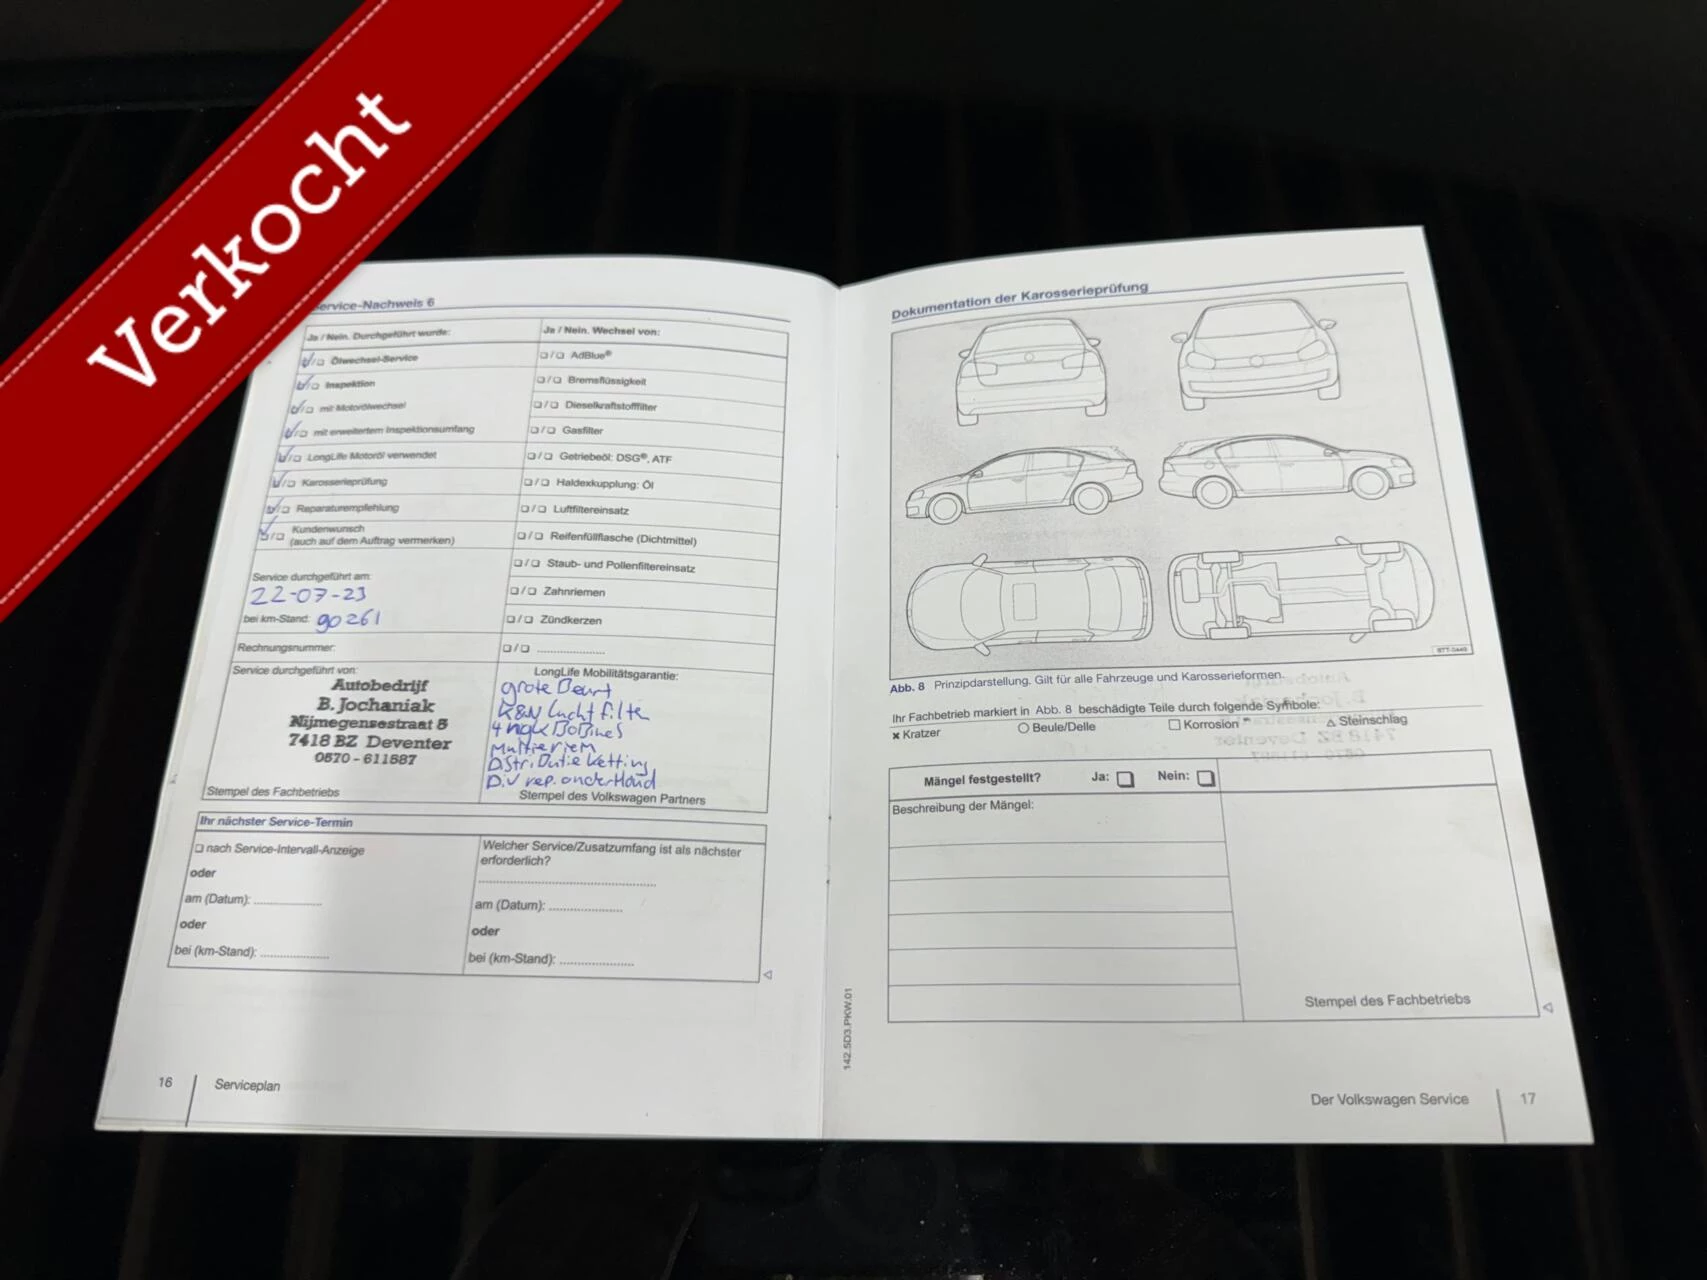 Verkocht
Service-Nachweis 6
Ja / Nein. Durchgeführt wurde:
Ölwechsel-Service
Inspektion
mit Motorölwechsel
mit erweitertem Inspektionsumfang
LongLife Motoröl verwendet
Karosserieprüfung
Reparaturempfehlung
Kundenwunsch
(auch auf dem Auftrag vermerken)
Service durchgeführt am:
22-07-23
bei km-Stand: 90261
Rechnungsnummer:
Service durchgeführt von:
Autobedrijf
B. Jochaniak
Nijmegensestraat 8
7418 BZ Deventer
0570 - 611587
Stempel des Fachbetriebs
Ja / Nein. Wechsel von:
AdBlue®
Bremsflüssigkeit
Dieselkraftstofffilter
Gasfilter
Getriebeöl: DSG®, ATF
Haldexkupplung: Öl
Luftfiltereinsatz
Reifenfüllflasche (Dichtmittel)
Staub- und Pollenfiltereinsatz
Zahnriemen
Zündkerzen
LongLife Mobilitätsgarantie:
grote Beurt
K&N Lucht filter
4 ngk BoBines
Multieriem
Distributie ketting
Div rep. onderHoud
Stempel des Volkswagen Partners
Ihr nächster Service-Termin
nach Service-Intervall-Anzeige
oder
am (Datum):
oder
bei (km-Stand):
Welcher Service/Zusatzumfang ist als nächster
erforderlich?
am (Datum):
oder
bei (km-Stand):
16 Serviceplan
142.5D3.PKW.01
Dokumentation der Karosserieprüfung
BTT-0449
Abb. 8 Prinzipdarstellung. Gilt für alle Fahrzeuge und Karosserieformen.
Ihr Fachbetrieb markiert in Abb. 8 beschädigte Teile durch folgende Symbole:
× Kratzer ○ Beule/Delle □ Korrosion △ Steinschlag
Mängel festgestellt? Ja: □ Nein: □
Beschreibung der Mängel:
Stempel des Fachbetriebs
Der Volkswagen Service 17